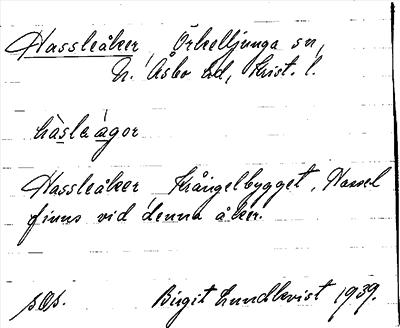 Hassleåker, Örkelljunga sn,
N. Åsbo hd, Krist. l.
hàsleàgor
Hassleåker Krångelbygget, Hassel
finns vid denna åker.
Birgit Lundkvist 1939.